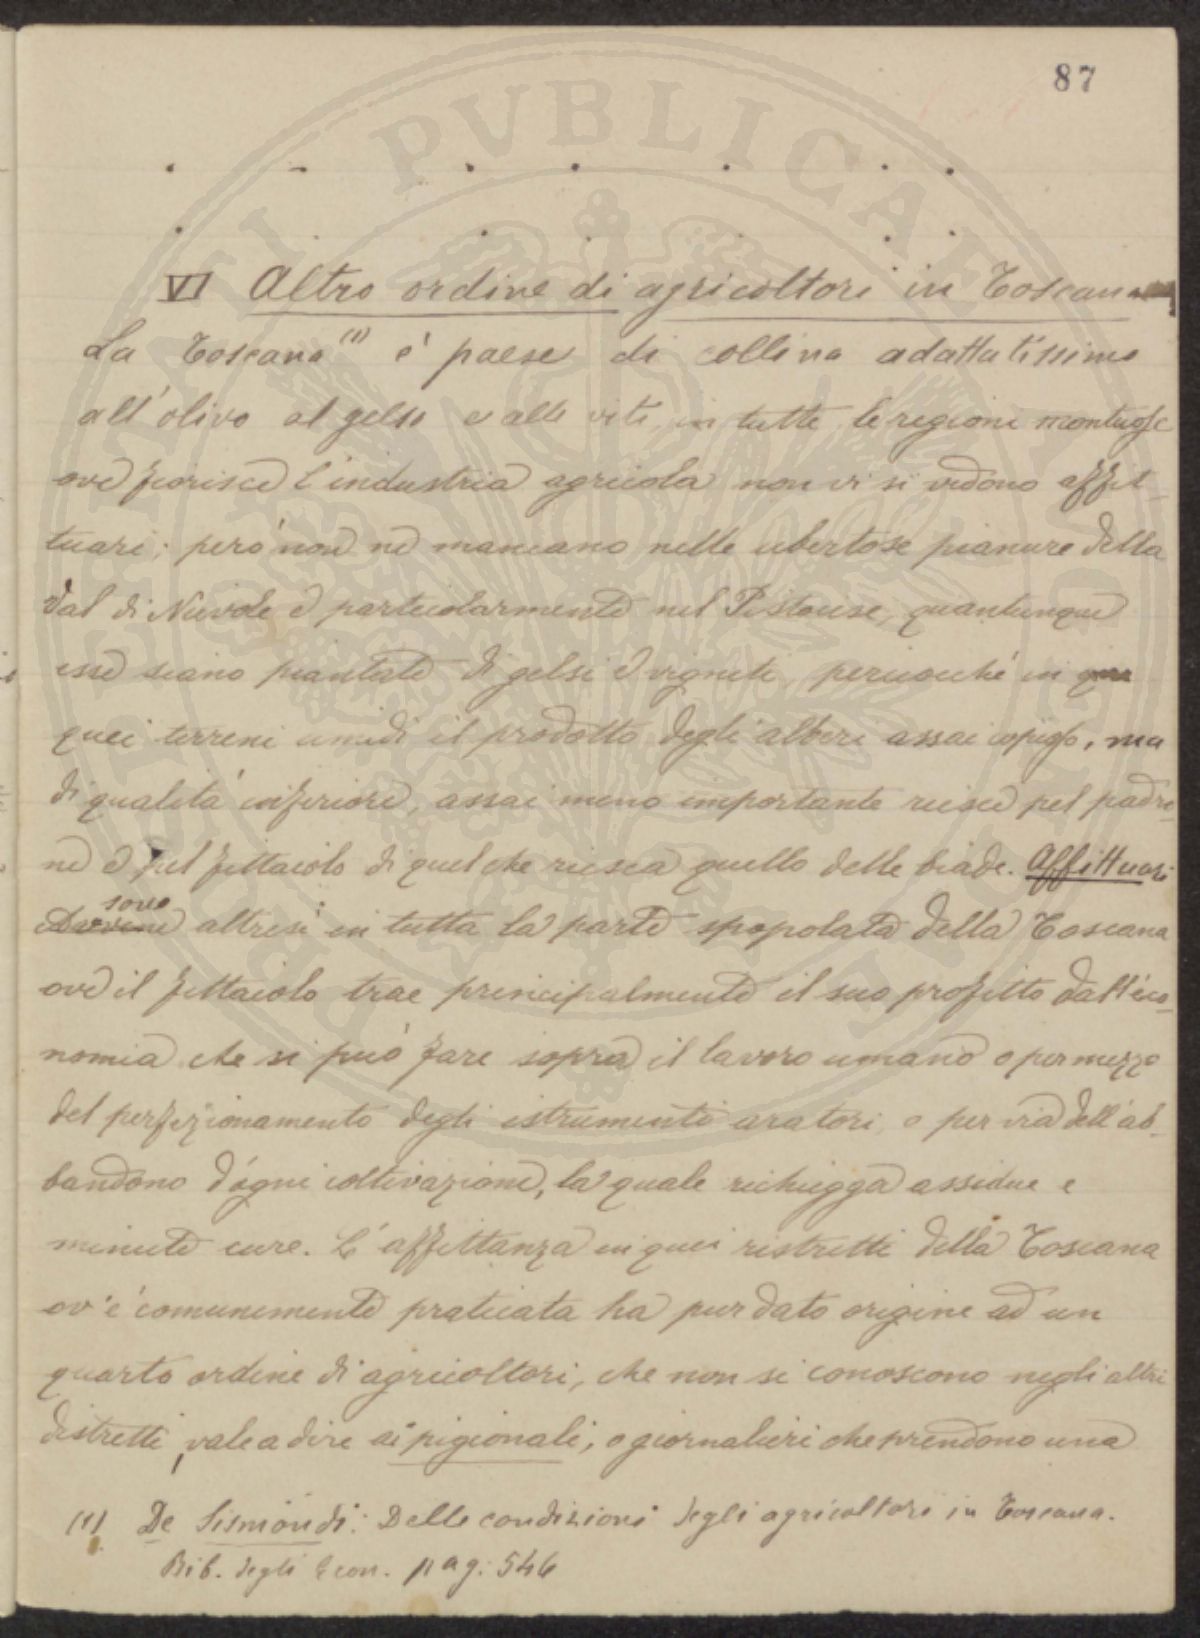 87
VI Altro ordine di agricoltori in Toscana
La Toscana (1) é paese di collina adattatissimo
all'olivo al gelso e alle viti, in tutte le regioni montuose
ove fiorisce l'industria agricola non vi si vedono affit-
tuari; peró non ne mancano nelle ubertose pianure della
Val di Nievole e particolarmente nel Pistoiese, quantunque
esse siano piantate di gelsi e vigneti, perciocché in
quei terreni umidi il prodotto degli alberi assai copioso, ma
di qualitá inferiore, assai meno importante riesce pel padro-
ne e pel fittaiolo di quel che riesca quello delle biade. Affittuari
sono altresi in tutta la parte spopolata della Toscana
ove il fittaiolo trae principalmente il suo profitto dall'eco-
nomia che si puó fare sopra il lavoro umano o per mezzo
del perfezionamento degli istrumenti aratori, o per via dell'ab-
bandono d'ogni coltivazione, la quale richiegga assidue e
minute cure. L'affittanza in quei ristretti della Toscana
ov'é comunemente praticata ha pur dato origine ad un
quarto ordine di agricoltori, che non si conoscono negli altri
distretti, vale a dire ai pigionali, o giornalieri che prendono una
(1) De Sismondi: Delle condizioni degli agricoltori in Toscana.
Bib. degli Econ. pag. 546
PUBLICAE